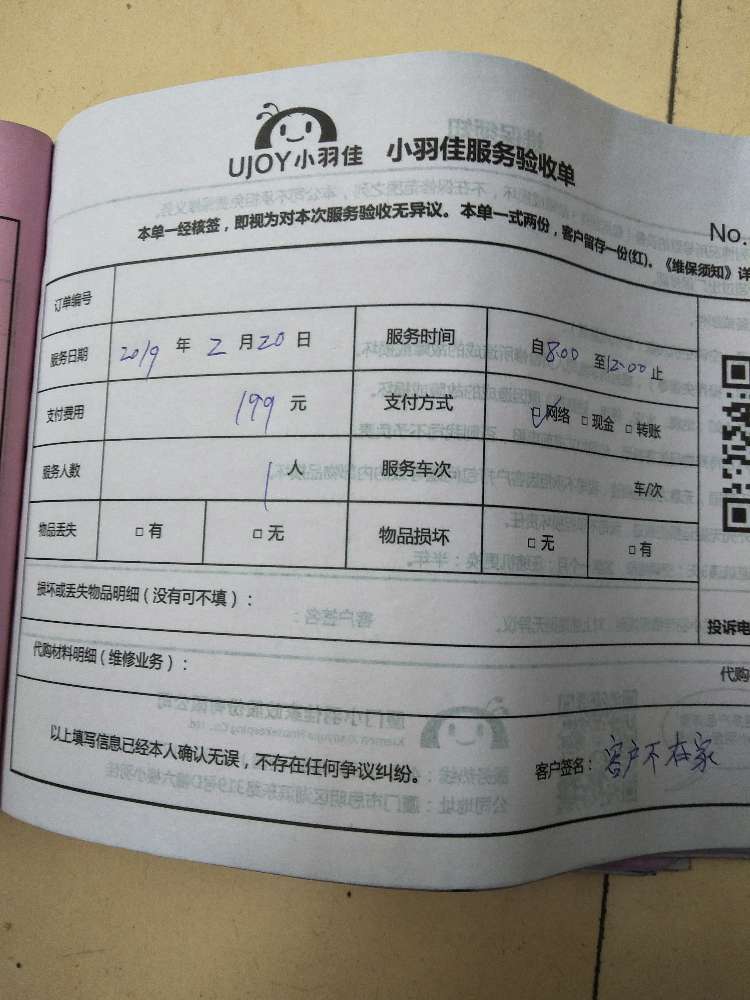 UJOY小羽佳 小羽佳服务验收单
本单一经核签，即视为对本次服务验收无异议。本单一式两份，客户留存一份(红)。《维保须知》详
No.
订单编号
服务日期 2019 年 2 月 20 日 服务时间 自 8:00 至 12:00 止
支付费用 199 元 支付方式 ☑ 网络 □ 现金 □ 转账
服务人数 1 人 服务车次 车/次
物品丢失 □ 有 □ 无 物品损坏 □ 无 □ 有
损坏或丢失物品明细（没有可不填）：
投诉电
代购材料明细（维修业务）：
代购
以上填写信息已经本人确认无误，不存在任何争议纠纷。
客户签名：客户不在家